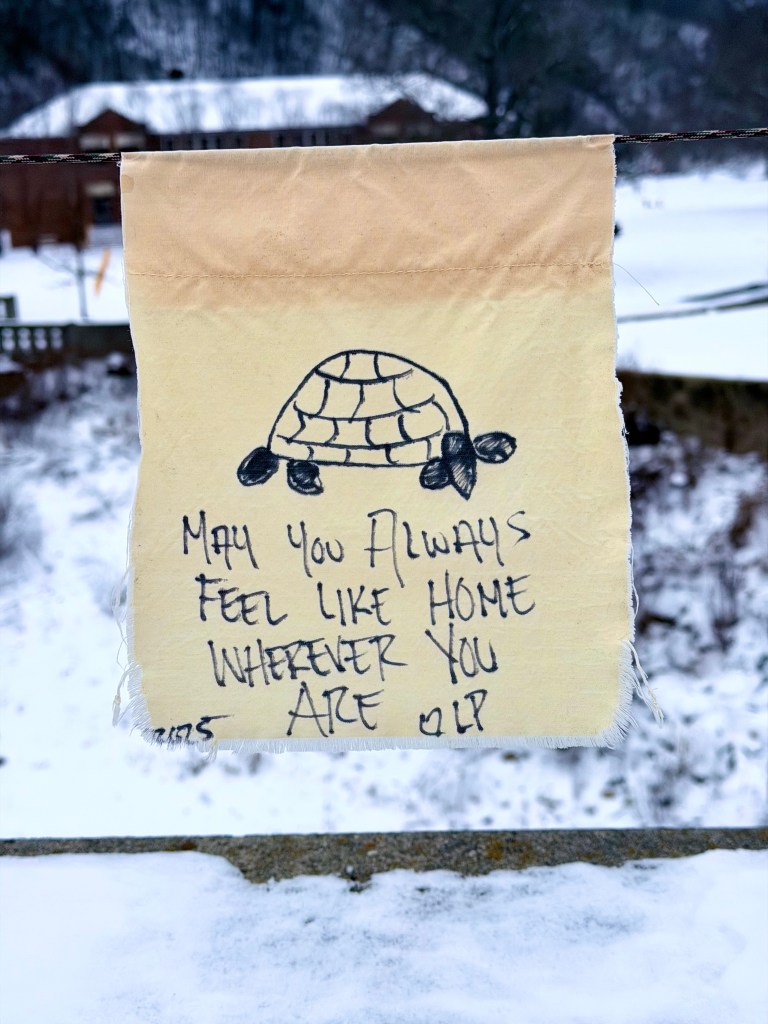 MAY YOU ALWAYS
FEEL LIKE HOME
WHEREVER YOU
ARE ♡LP